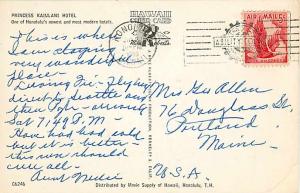 PRINCESS KAIULANI HOTEL
One of Honolulu's newest and most modern hotels.
HAWAII
POST CARD
HONOLULU
AIR MAIL
This is where
I am stopping
very wonderful
place
Leaving Fri - Flying
direct, Seattle and
then
Sat 7/49 P.M
Have had bad cold
but it is better
this should
cure all.
Aunt Nellie
Mrs Geo Allen
76 Douglass St.
Portland
Maine
U.S.A.
C6246
Distributed by Movie Supply of Hawaii, Honolulu, T.H.